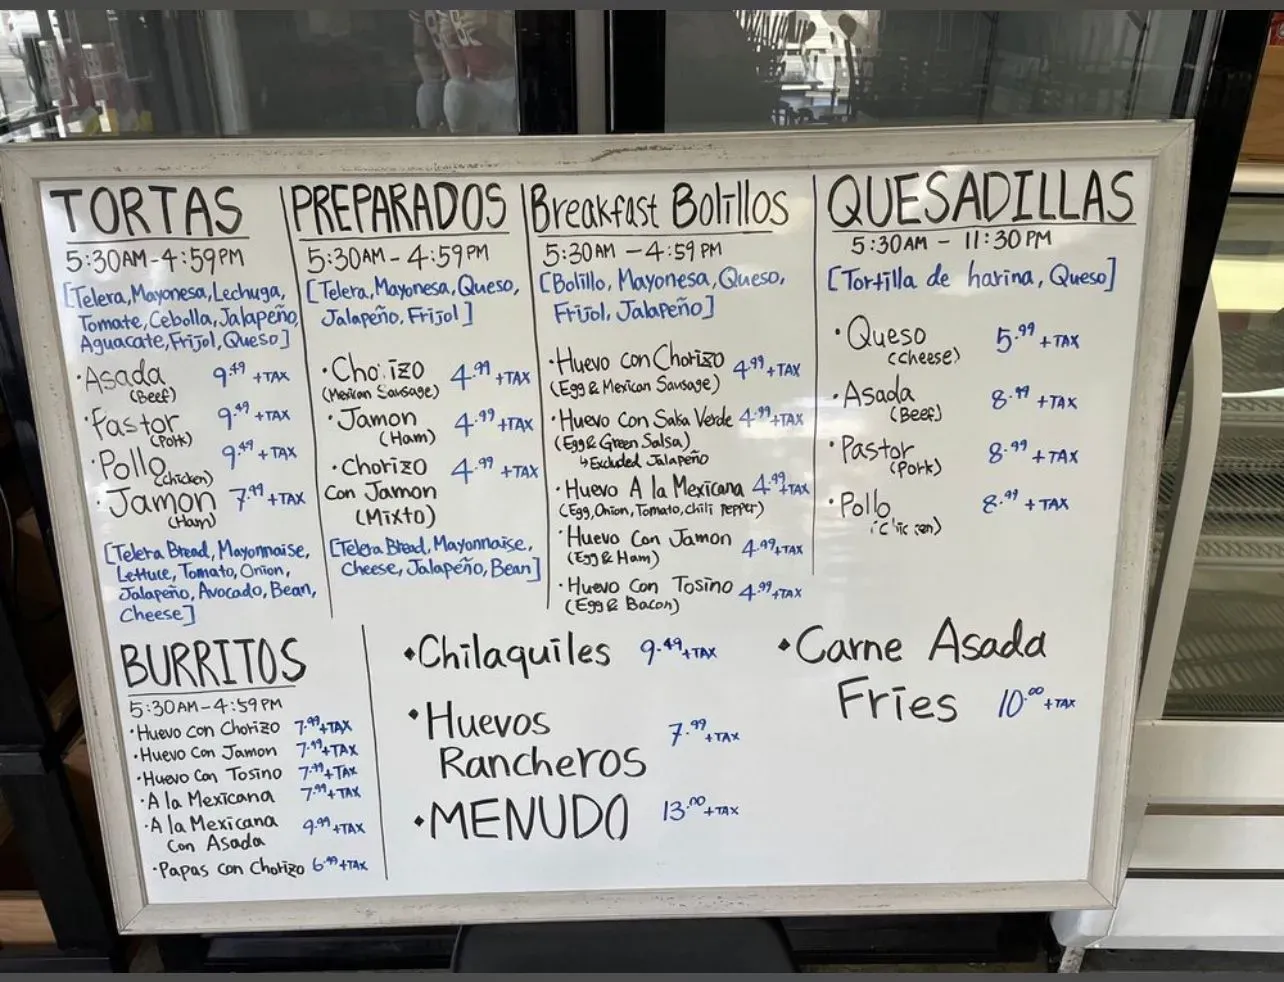 TORTAS
5:30AM-4:59PM
[Telera, Mayonesa, Lechuga,
Tomate, Cebolla, Jalapeño,
Aguacate, Frijol, Queso]
·Asada 9.49 +TAX
(Beef)
·Pastor 9.49 +TAX
(Pork)
·Pollo 9.49 +TAX
(Chicken)
·Jamon 7.99 +TAX
(Ham)
[Telera Bread, Mayonnaise,
Lettuce, Tomato, Onion,
Jalapeño, Avocado, Bean,
Cheese]
PREPARADOS
5:30AM-4:59PM
[Telera, Mayonesa, Queso,
Jalapeño, Frijol]
·Chorizo 4.99 +TAX
(Mexican Sausage)
·Jamon 4.99 +TAX
(Ham)
·Chorizo 4.99 +TAX
Con Jamon
(Mixto)
[Telera Bread, Mayonnaise,
Cheese, Jalapeño, Bean]
Breakfast Bolillos
5:30AM - 4:59PM
[Bolillo, Mayonesa, Queso,
Frijol, Jalapeño]
·Huevo con Chorizo 4.99 +TAX
(Egg & Mexican Sausage)
·Huevo Con Salsa Verde 4.99 +TAX
(Egg & Green Salsa)
↳Excluded Jalapeño
·Huevo A la Mexicana 4.99 +TAX
(Egg, Onion, Tomato, chili pepper)
·Huevo Con Jamon 4.99 +TAX
(Egg & Ham)
·Huevo Con Tosino 4.99 +TAX
(Egg & Bacon)
QUESADILLAS
5:30AM - 11:30PM
[Tortilla de harina, Queso]
·Queso 5.99 +TAX
(cheese)
·Asada 8.99 +TAX
(Beef)
·Pastor 8.99 +TAX
(Pork)
·Pollo 8.99 +TAX
(Chicken)
BURRITOS
5:30AM-4:59PM
·Huevo con Chorizo 7.99 +TAX
·Huevo Con Jamon 7.99 +TAX
·Huevo Con Tosino 7.99 +TAX
·A la Mexicana 7.99 +TAX
·A la Mexicana 9.99 +TAX
con Asada
·Papas con Chorizo 6.99 +TAX
·Chilaquiles 9.49 +TAX
·Huevos 7.99 +TAX
Rancheros
·MENUDO 13.00 +TAX
·Carne Asada
Fries 10.00 +TAX